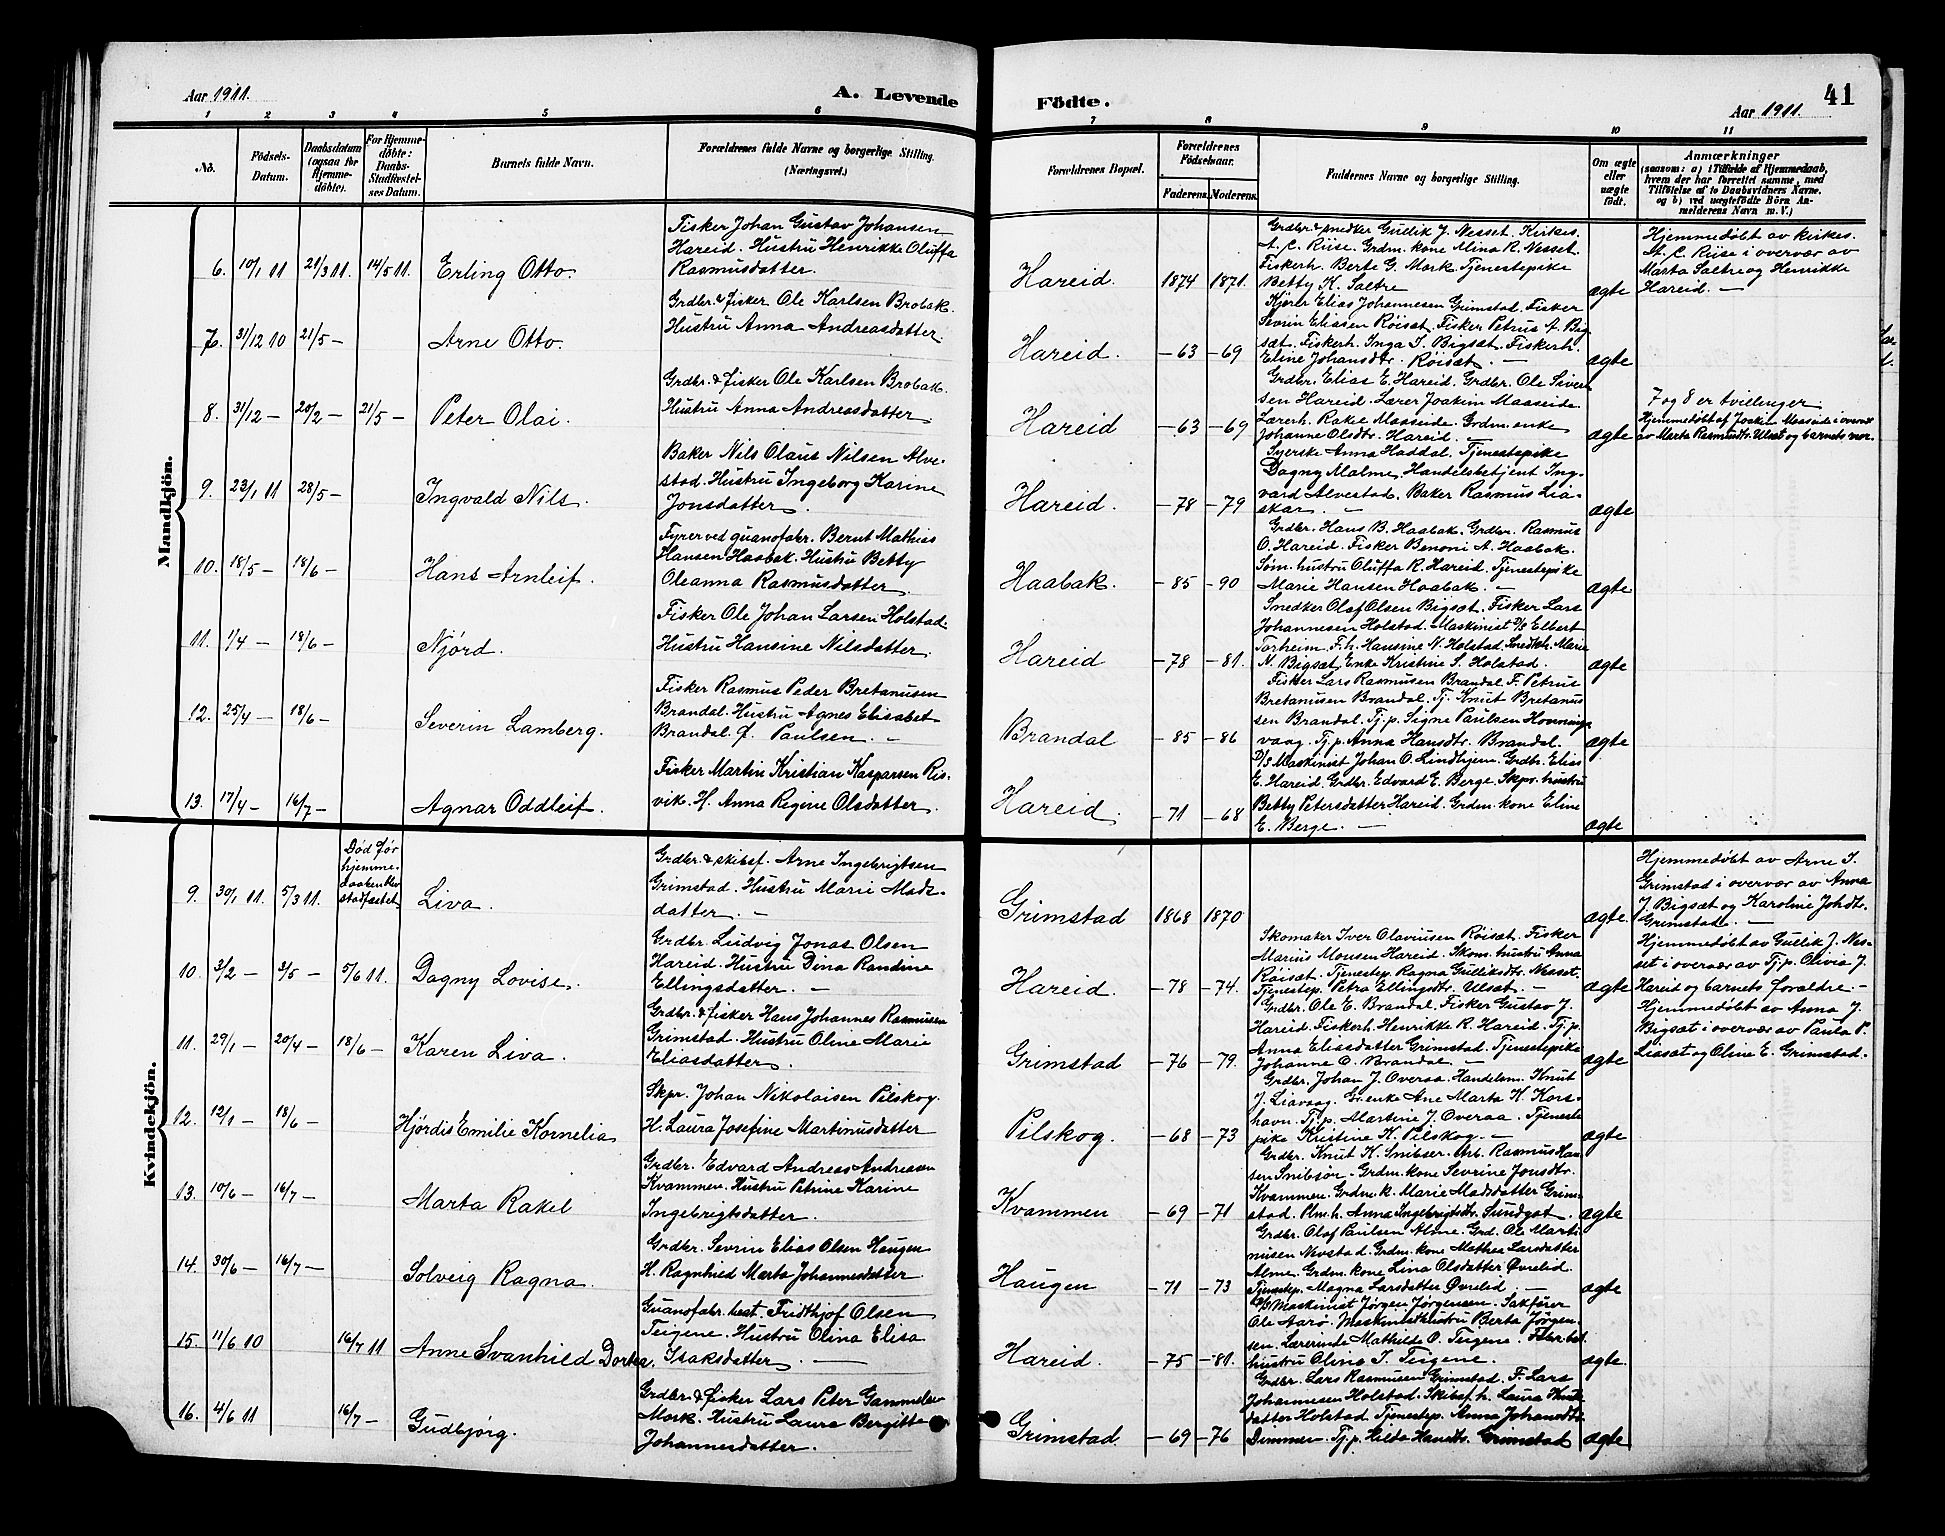 Aar 1911.
A. Levende
Födte.
Aar 1911.
41
1 2 3 4 5 6 7 8 9 10 11
No.
Födsels-Datum.
Daabsdatum (ogsaa for Hjemme-döbte).
For Hjemme-döbte: Daabs-Stadfæstel-ses Datum.
Barnets fulde Navn.
Forældrenes fulde Navne og borgerlige Stilling.
(Næringsvei.)
Forældrenes Bopæl.
Forældrenes Födselsaar.
Faderens. Moderens.
Faddernes Navne og borgerlige Stilling.
Om ægte eller uægte födt.
Anmærkninger
(saasom: a) i Tilfælde af Hjemmedaab, hvem der har forrettet samme, med Tilföielse af to Daabsvidners Navne. og b) ved uægtefödte Börn An-melderens Navn m. V.)
Mandkjön.
6. 10/1 11 21/3 11. 14/5 11. Erling Otto.
Fisker Johan Gustav Johansen
Hareid. Hustru Henrikke Oluffa
Rasmusdatter.
Hareid. 1874 1871.
Grdbr. & snedker Gullik J. Nesset. Kirkes.
A. C. Riise. Grdm. kone Alina R. Nesset.
Fiskerh. Berte G. Mork. Tjenestepike
Betty K. Saltre
ægte
Hjemmedøbt av kirkes.
A. C. Riise i overvær av
Marta Saltre og Henrikke
Hareid. —
7. 31/12 10 21/5 — Arne Otto.
Grdbr. & fisker Ole Karlsen Brobak.
Hustru Anna Andreasdatter
Hareid. — 63 — 69
Kjører Elias Johannesen Grimstad. Fisker
Sevrin Eliassen Röisæt. Fisker Petrus A. Big
sæt. Fiskerh. Inga I. Bigsæt. Fiskerh.
Eline Johansdtr. Röisæt. —
ægte
8. 31/12 — 20/2 — 21/5 — Peter Olai.
Grdbr. & fisker Ole Karlsen Brobak.
Hustru Anna Andreasdatter
Hareid — 63 — 69
Grdbr. Elias E. Hareid. Grdbr. Ole Siver
sen Hareid. Lærer Joakim Maaseide
Lærerh. Rakel Maaseide. Grdm. enke
Johanne Olsdtr. Hareid. —
ægte
7 og 8 er tvillinger.
Hjemmedøbt af Joakim Maaseide i overvær
av Marta Rasmusdtr. Ulsæt og barnets mor.
9. 23/1 11 28/5 — Ingvald Nils.
Baker Nils Olaus Nilsen Alve-
stad. Hustru Ingeborg Karine
Jonsdatter.
Hareid. — 78 — 79
Syerske Anna Haddal. Tjenestepike
Dagny Malme. Handelsbetjent Ing-
vard Alvestad. Baker Rasmus Lia-
skar. —
ægte
10. 18/5 — 18/6 — Hans Arnleif.
Fyrer ved guanofabr. Bernt Mathias
Hansen Haabak. Hustru Betty
Oleanna Rasmusdatter.
Haabak. — 85 — 90
Grdbr. Hans B. Haabak. Grdbr. Rasmus
O. Hareid. Fisker Benoni A. Haabak.
Søm. hustru Oluffa R. Hareid. Tjenestepike
Marie Hansen Haabak —
ægte
11. 1/4 — 18/6 — Njörd.
Fisker Ole Johan Larsen Holstad.
Hustru Hansine Nilsdatter.
Hareid — 78 — 81.
Snedker Olaf Olsen Bigsæt. Fisker Lars
Johannesen Holstad. Maskinist D/S Eltert
Torheim. F.h. Hansine N. Holstad. Snedkh. Marie
N. Bigsæt. Enke Kristine S. Holstad.
ægte
12. 25/4 — 18/6 — Severin Lamberg.
Fisker Rasmus Peder Bretanusen
Brandal. Hustru Agnes Elisabet
Brandal f. Paulsen. —
Brandal — 85 — 86
Fisker Lars Rasmusen Brandal. F. Petrus
Bretanusen Brandal. Tj. Knut Bretanus
sen Brandal. Tj.p. Signe Paulsen Hovninge
vaag. Tj.p. Anna Hansdtr. Brandal.
ægte
13. 17/4 — 16/7 — Agnar Oddleif.
Fisker Martin Kristian Kasparsen Ris-
vik. H. Anna Regine Olsdatter.
Hareid. — 71 — 68
D/S Maskinist Johan O. Lindhjem. Grdbr. Elias
E. Hareid. Grdbr. Edvard E. Berge. Skpr. hustru
Betty Petersdatter Hareid. Grdm. kone Eline
E. Berge. —
ægte
Kvindekjön.
9. 30/1 11. 5/3 11. Død før hjemme-daaben blev stadfæstet. Liva.
Grdbr. & skibsf. Arne Ingebrigtsen
Grimstad. Hustru Marie Mads-
datter. —
Grimstad 1868 1870
ægte.
Hjemmedøbt av Arne I.
Grimstad i overvær av Anna
J. Bigsæt og Karoline Johdtr.
Grimstad. —
10. 3/2 — 3/5 — 5/6 11. Dagny Lovise.
Grdbr. Ludvig Jonas Olsen
Hareid. Hustru Dina Randine
Ellingsdatter. —
Hareid. — 78 — 74.
Skomaker Iver Olaviusen Röisæt. Fisker
Marius Monsen Hareid. Skom. hustru Anna
Röisæt. Tjenestep. Ragna Gulliksdtr. Nesset.
Tjenestep. Petra Ellingsdtr. Ulsæt. —
ægte
Hjemmedøbt av Gullik J. Nes-
set i overvær av Tj.p. Olivia J.
Hareid og barnets foraldre. —
11. 29/1 — 20/4 — 18/6 — Karen Liva.
Grdbr. & fisker Hans Johannes Rasmusen
Grimstad. Hustru Oline Marie
Eliasdatter.
Grimstad — 76 — 79.
Grdbr. Ole E. Brandal. Fisker Gustav J.
Hareid. Fiskerh. Henrikke R. Hareid. Tj.p.
Anna Eliasdatter Grimstad. Tjenestepike
Johanne O. Brandal —
ægte
Hjemmedøbt av Anna J.
Bigsæt i overvær av Paula P.
Liasæt og Oline E. Grimstad.
12. 12/1 — 18/6 — Hjördis Emilie Kornelia
Skpr. Johan Nikolaisen Pilskog.
H. Laura Josefine Martinusdatter
Pilskog. — 68 — 73
Grdbr. Johan J. Overaa. Handelsm. Knut
J. Liavaag. Gr. enke Ane Marta K. Kors-
havn. Tj.p. Martine J. Overaa. Tjeneste
pike Kristine K. Pilskog. —
ægte
13. 10/6 — 16/7 — Marta Rakel
Grdbr. Edvard Andreas Andreasen
Kvammen. Hustru Petrine Karine
Ingebrigtsdatter.
Kvammen — 69 — 71
Grdbr. Knut K. Snibsør. Arb. Rasmus Han
sen Snibsör. Grdm. kone Sevrine Jonsdtr.
Kvammen. Grdm. k. Marie Madsdatter Grim-
stad. Plm. h. Anna Ingebrigtsdtr. Sundgot.
ægte
14. 30/6 — 16/7 — Solveig Ragna.
Grdbr. Sevrin Elias Olsen Haugen
H. Ragnhild Marta Johannesdatter
Haugen — 71 — 73
Grdbr. Olaf Paulsen Alme. Grd. Ole Marti
nusen Nevstad. Grdm. kone Mathea Larsdatter
Alme. Grdm. kone Lina Olsdatter Øvrelid.
Tjenestep. Magna Larsdatter Øvrelid —
ægte
15. 11/6 10 16/7 11 Anne Svanhild Dorthea.
Guanofabr. best. Fridthjof Olsen
Teigene. Hustru Olina Elisa
Isaksdatter. —
Hareid. — 75 — 81.
D/S Maskinist Jørgen Jørgensen. Sakfører
Ole Aarø. Maskinisthustru Berta Jörgen-
sen. Lærerinde Mathilde O. Teigene.
hustru Olina I. Teigene.
ægte.
16. 4/6 11 16/7 — Gudbjörg.
Grdbr. & fisker Lars Peter Gammelsen
Mork. Hustru Laura Bergitte
Johannesdatter.
Grimstad. — 69 — 76
Grdbr. Lars Rasmusen Grimstad. F. Lars
Johannesen Holstad. Skibsf. h. Laura Knuts
datter Holstad. Tjenestep. Anna Johansdtr.
Dimmen. Tj.p. Hilda Hansdtr. Grimstad
ægte